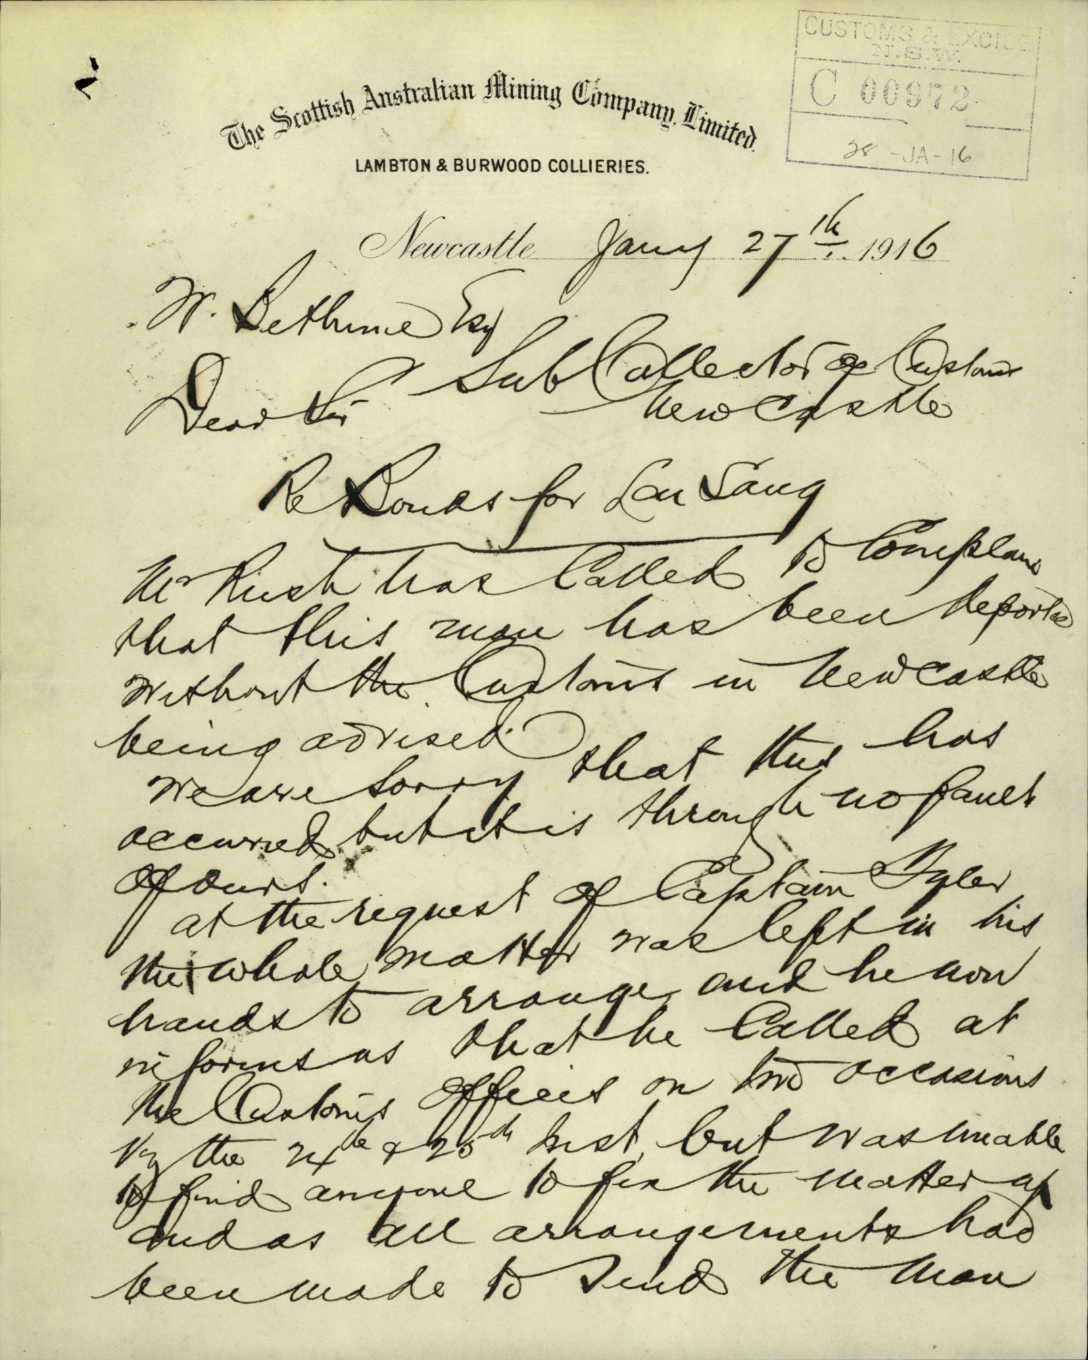 CUSTOMS & EXCISE
N.S.W.
C 00972
28 -JA-16
The Scottish Australian Mining Company, Limited.
LAMBTON & BURWOOD COLLIERIES.
Newcastle Jany 27th 1916
W. Bethune Esq
Sub Collector of Customs
Newcastle
Dear Sir
Re Bonds for Lau Sang
Mr Rush has called to complain
that this man has been deported
without the Customs in Newcastle
being advised.
We are sorry that this has
occurred, but it is through no fault
of ours.
At the request of Captain Tyler
the whole matter was left in his
hands to arrange, and he now
informs us that he called at
the Customs Offices on two occasions
Vz the 24th & 25th Inst, but was unable
to find anyone to fix the matter up
and as all arrangements had
been made to send the man